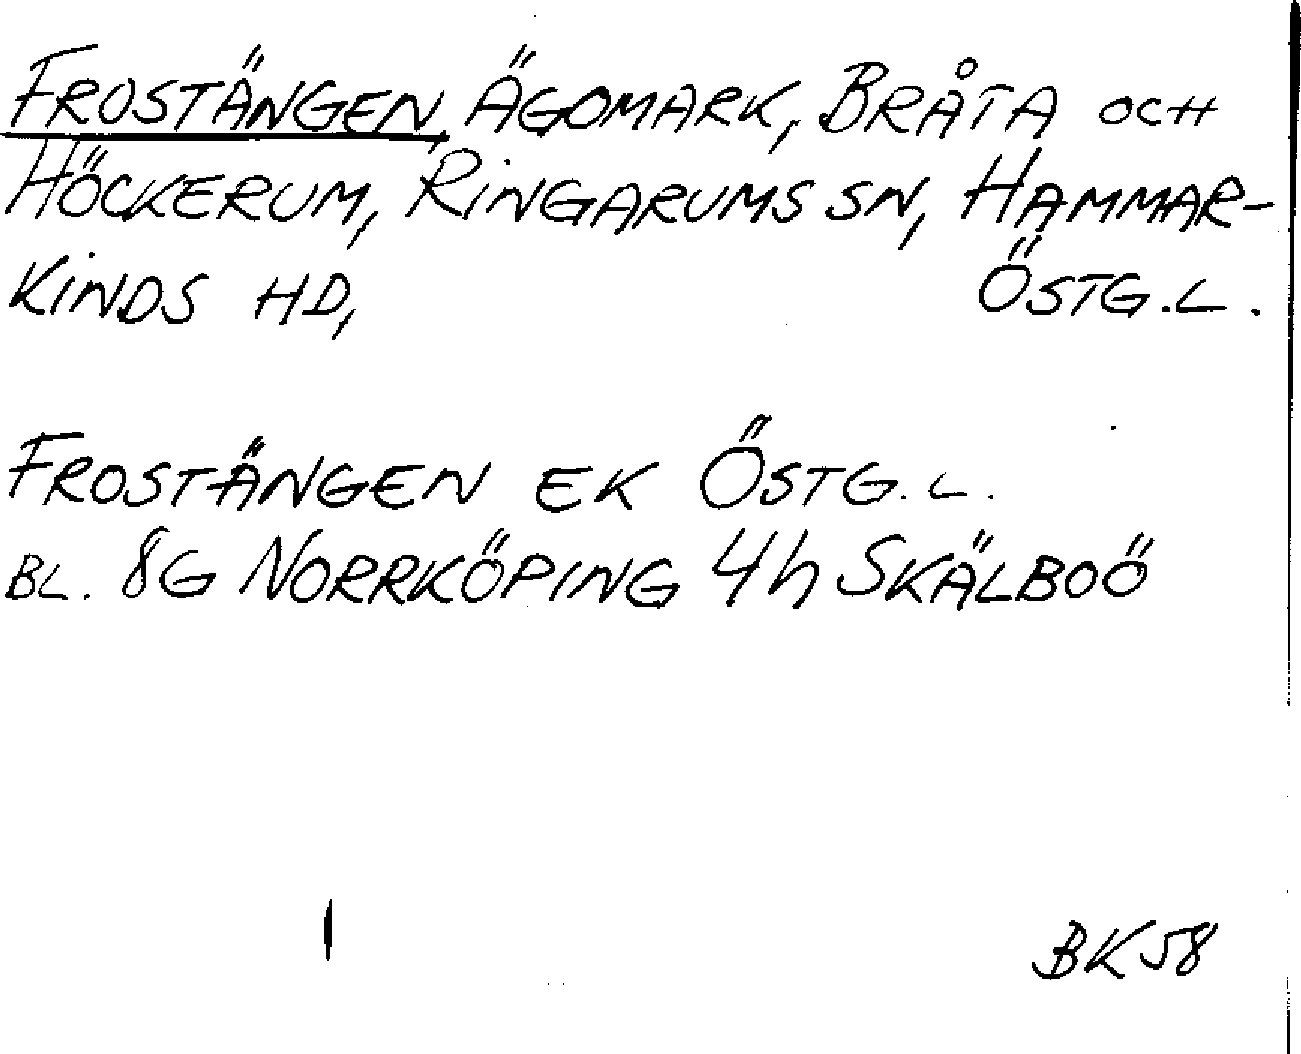 FROSTÄNGEN, ÄGOMARK, BRÅTA OCH
HÖCKERUM, RINGARUMS SN, HAMMAR-
KINDS HD, ÖSTG.L.
FROSTÄNGEN EK ÖSTG.L.
BL. 8G NORRKÖPING 4h SKÄLBOÖ
BK58